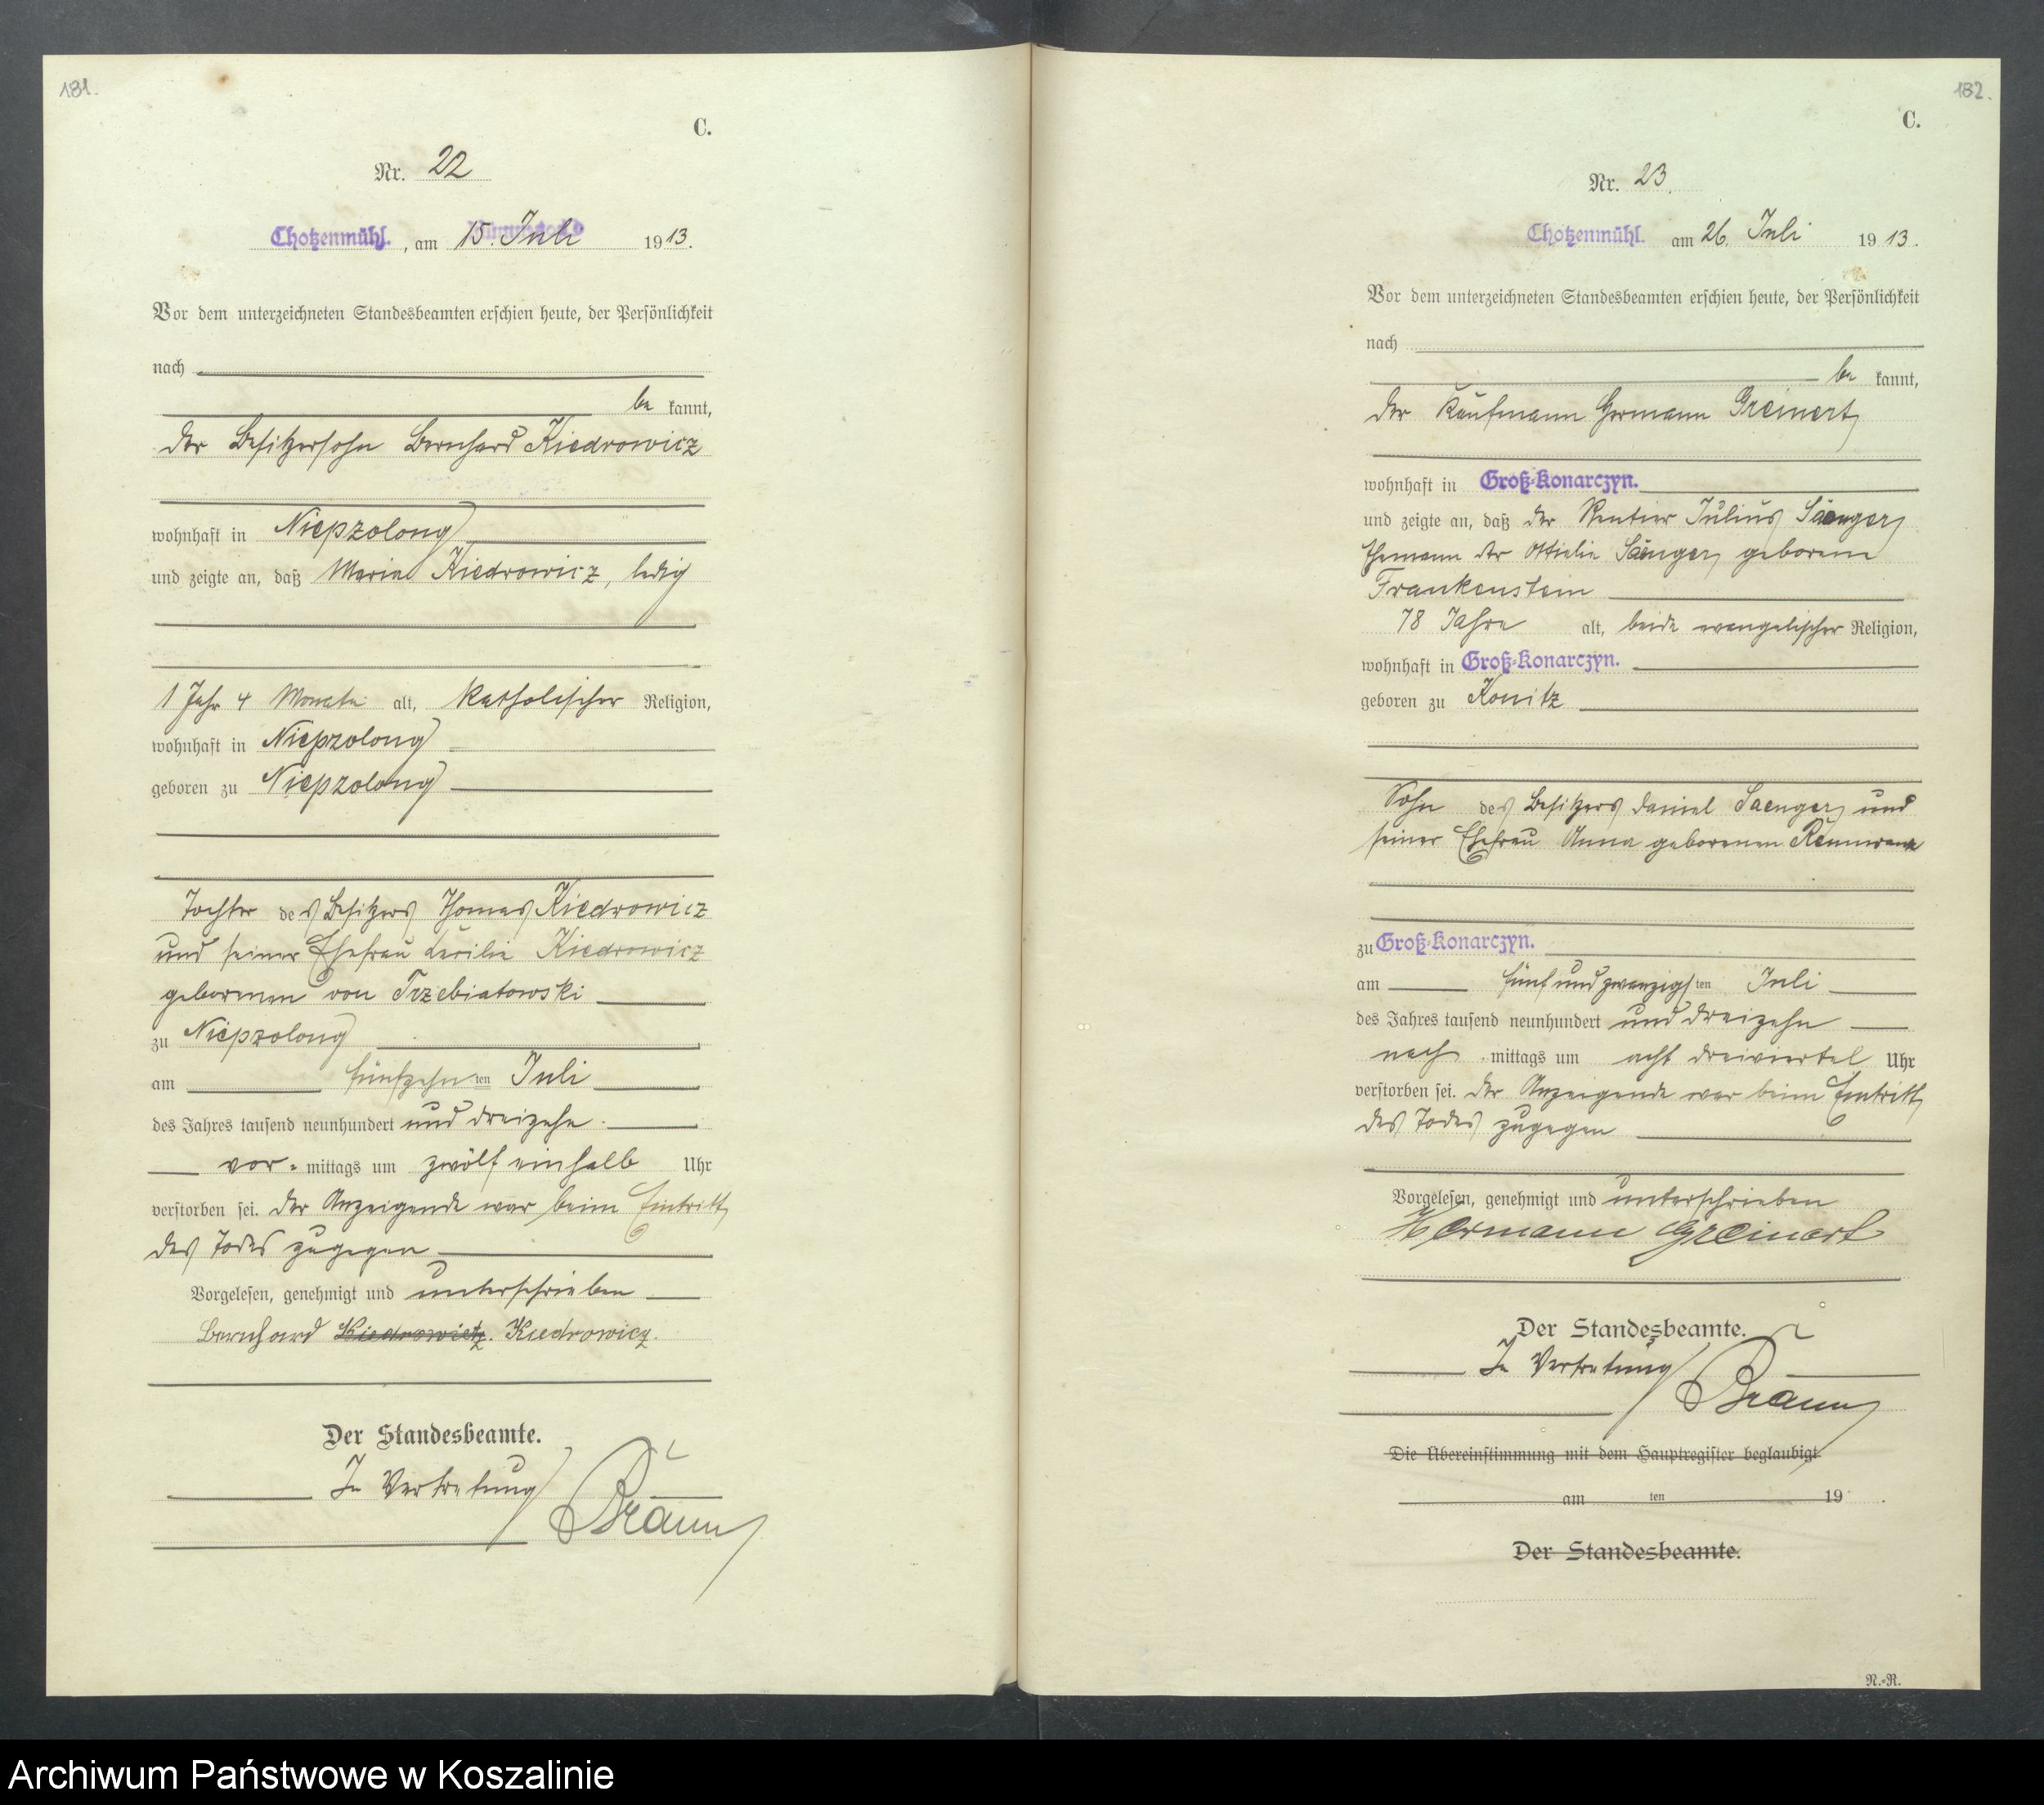 181.
C.
Nr. 22
Chotzenmühl. , am 15. Juli 1913.
Vor dem unterzeichneten Standesbeamten erschien heute, der Persönlichkeit
nach
be kannt,
der Besitzersohn Bernhard Kiedrowicz
wohnhaft in Niepzolong
und zeigte an, daß Maria Kiedrowicz, ledig
1 Jahr 4 Monate alt, katholischer Religion,
wohnhaft in Niepzolong
geboren zu Niepzolong
Tochter des Besitzers Thomas Kiedrowicz
und seiner Ehefrau Cecilie Kiedrowicz
geborenen von Trzebiatowski
zu Niepzolong
am fünfzehnten Juli
des Jahres tausend neunhundert und dreizehn
vor= mittags um zwölf einhalb Uhr
verstorben sei. Der Anzeigende war beim Eintritt
des Todes zugegen
Vorgelesen, genehmigt und unterschrieben
Bernhard Kiedrowietz. Kiedrowicz.
Der Standesbeamte.
In Vertretung
Bräun
182.
C.
Nr. 23.
Chotzenmühl. am 26. Juli 1913.
Vor dem unterzeichneten Standesbeamten erschien heute, der Persönlichkeit
nach
be kannt,
der Kaufmann Hermann Greinert,
wohnhaft in Groß-Konarczyn.
und zeigte an, daß der Rentier Julius Saenger,
Ehemann der Ottielie Sänger, geborene
Frankenstein
78 Jahre alt, beide evangelischer Religion,
wohnhaft in Groß-Konarczyn.
geboren zu Konitz
Sohn des Besitzers Daniel Saenger und
seiner Ehefrau Anna geborenen
zu Groß-Konarczyn.
am fünfundzwanzigsten Juli
des Jahres tausend neunhundert und dreizehn
nach mittags um acht dreiviertel Uhr
verstorben sei. Der Anzeigende war beim Eintritt
des Todes zugegen
Vorgelesen, genehmigt und unterschrieben
Hermann Greinert
Der Standesbeamte.
In Vertretung
Bräun
Die Übereinstimmung mit dem Hauptregister beglaubigt
am ten 19 .
Der Standesbeamte.
N.-R.
Archiwum Państwowe w Koszalinie